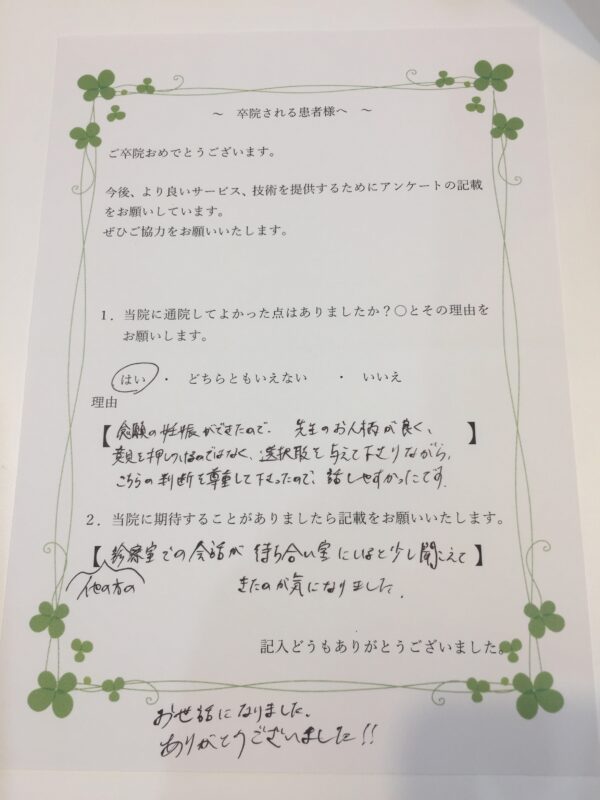 ～ 卒院される患者様へ ～
ご卒院おめでとうございます。
今後、より良いサービス、技術を提供するためにアンケートの記載
をお願いしています。
ぜひご協力をお願いいたします。
1．当院に通院してよかった点はありましたか？〇とその理由を
お願いします。
はい ・ どちらともいえない ・ いいえ
理由
【念願の妊娠ができたので。 先生のお人柄が良く、】
意見を押しつけるのではなく、選択肢を与えて下さりながら、
こちらの判断を尊重して下さったので、話しやすかったです。
2．当院に期待することがありましたら記載をお願いいたします。
【診察室での会話が待ち合い室にいると少し聞こえて】
他の方の
きたのが気になりました。
記入どうもありがとうございました。
お世話になりました。
ありがとうございました!!